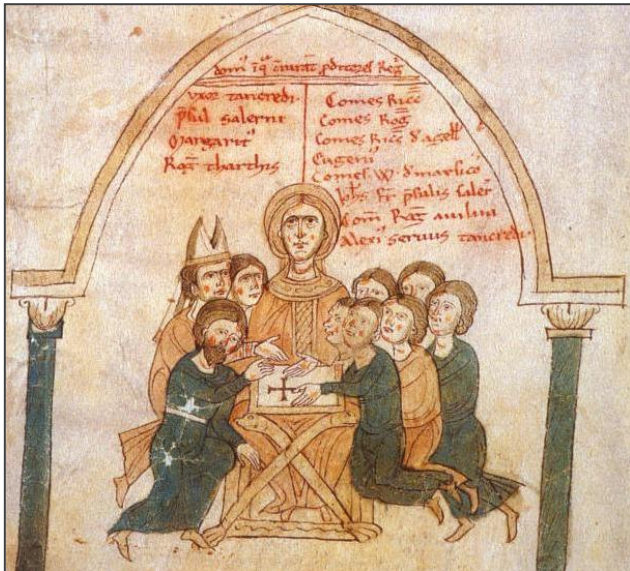 uxor tancredi
psul salerni
Margarit'
Rog tharthis
Comes Ricc
Comes Rog
Comes Ricc d'agell
Eugeni'
Comes W. d'marsico
Ioh's fr psulis saler
Com Rog avilini
Alexi' servus tancredi